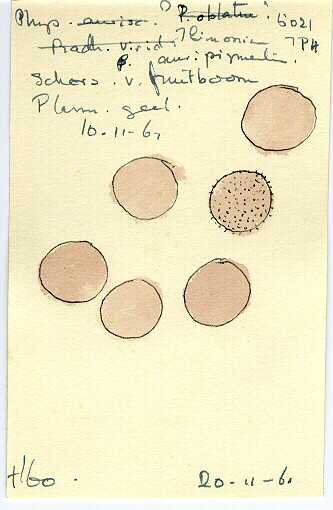 Phys. aurisc. ? P. oblatum 6021
Badh. virid. ? limonia 7PH
P. auripigmentum.
Schors v. fruitboom
Plasm. geel.
10-11-61
+/60. 20-11-61